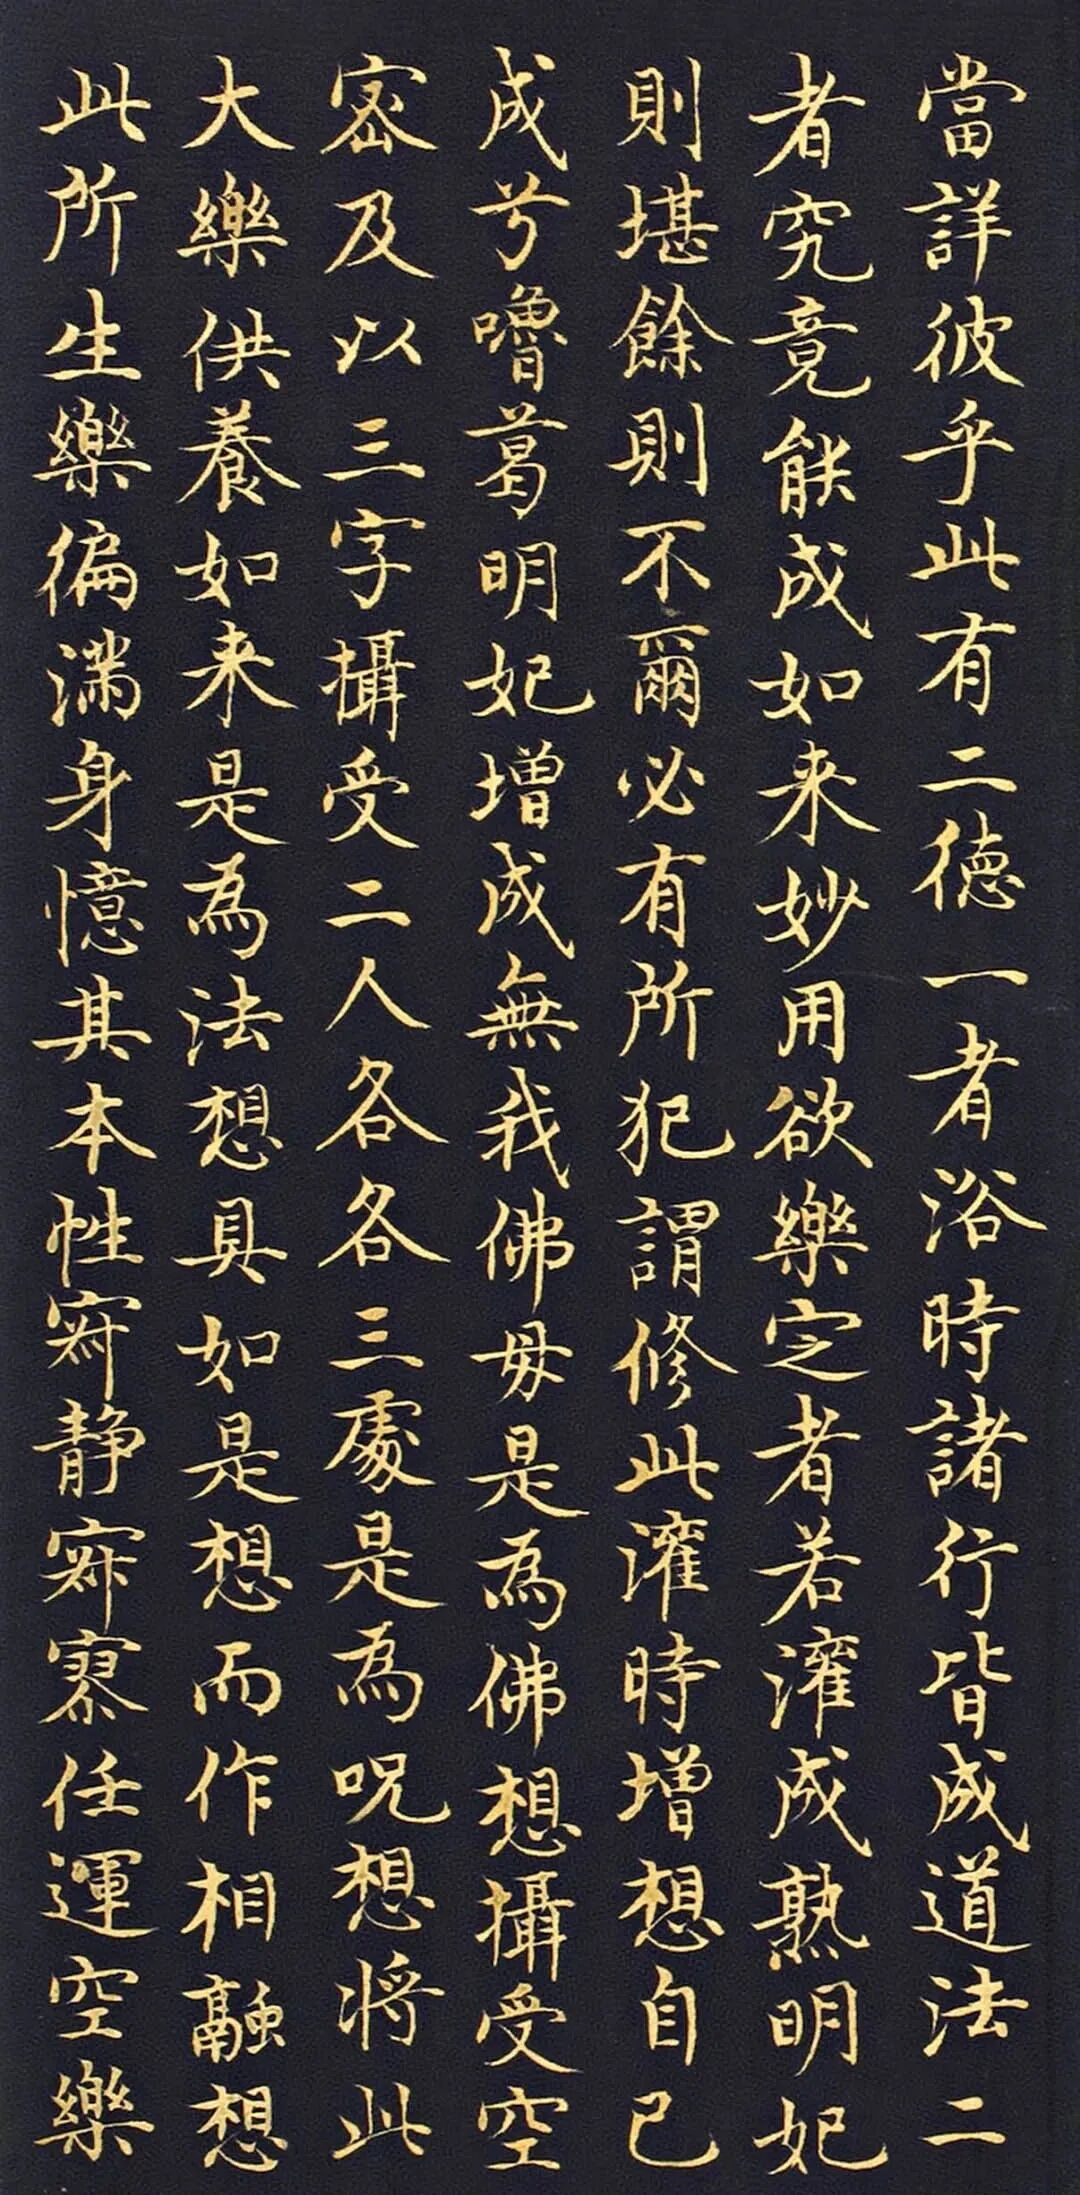 當詳彼乎此有二德一者浴時諸行皆成道法二
者究竟能成如来妙用欲樂定者若灌成熟明妃
則堪餘則不爾必有所犯謂修此灌時增想自己
成兮嚕葛明妃增成無我佛母是為佛想攝受空
密及以三字攝受二人各各三處是為呪想將此
大樂供養如来是為法想具如是想而作相融想
此所生樂徧滿身憶其本性寂静寂寮任運空樂